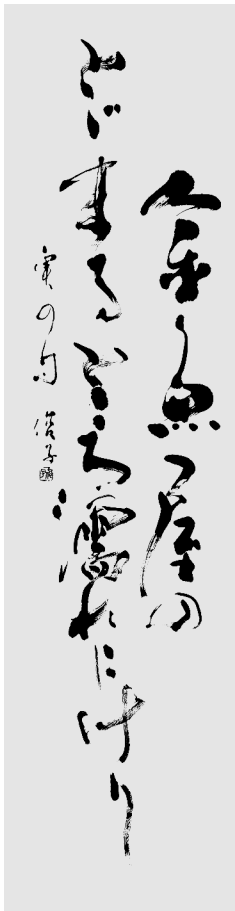 金魚屋の
とゞまるところ濡れにけり
実の句